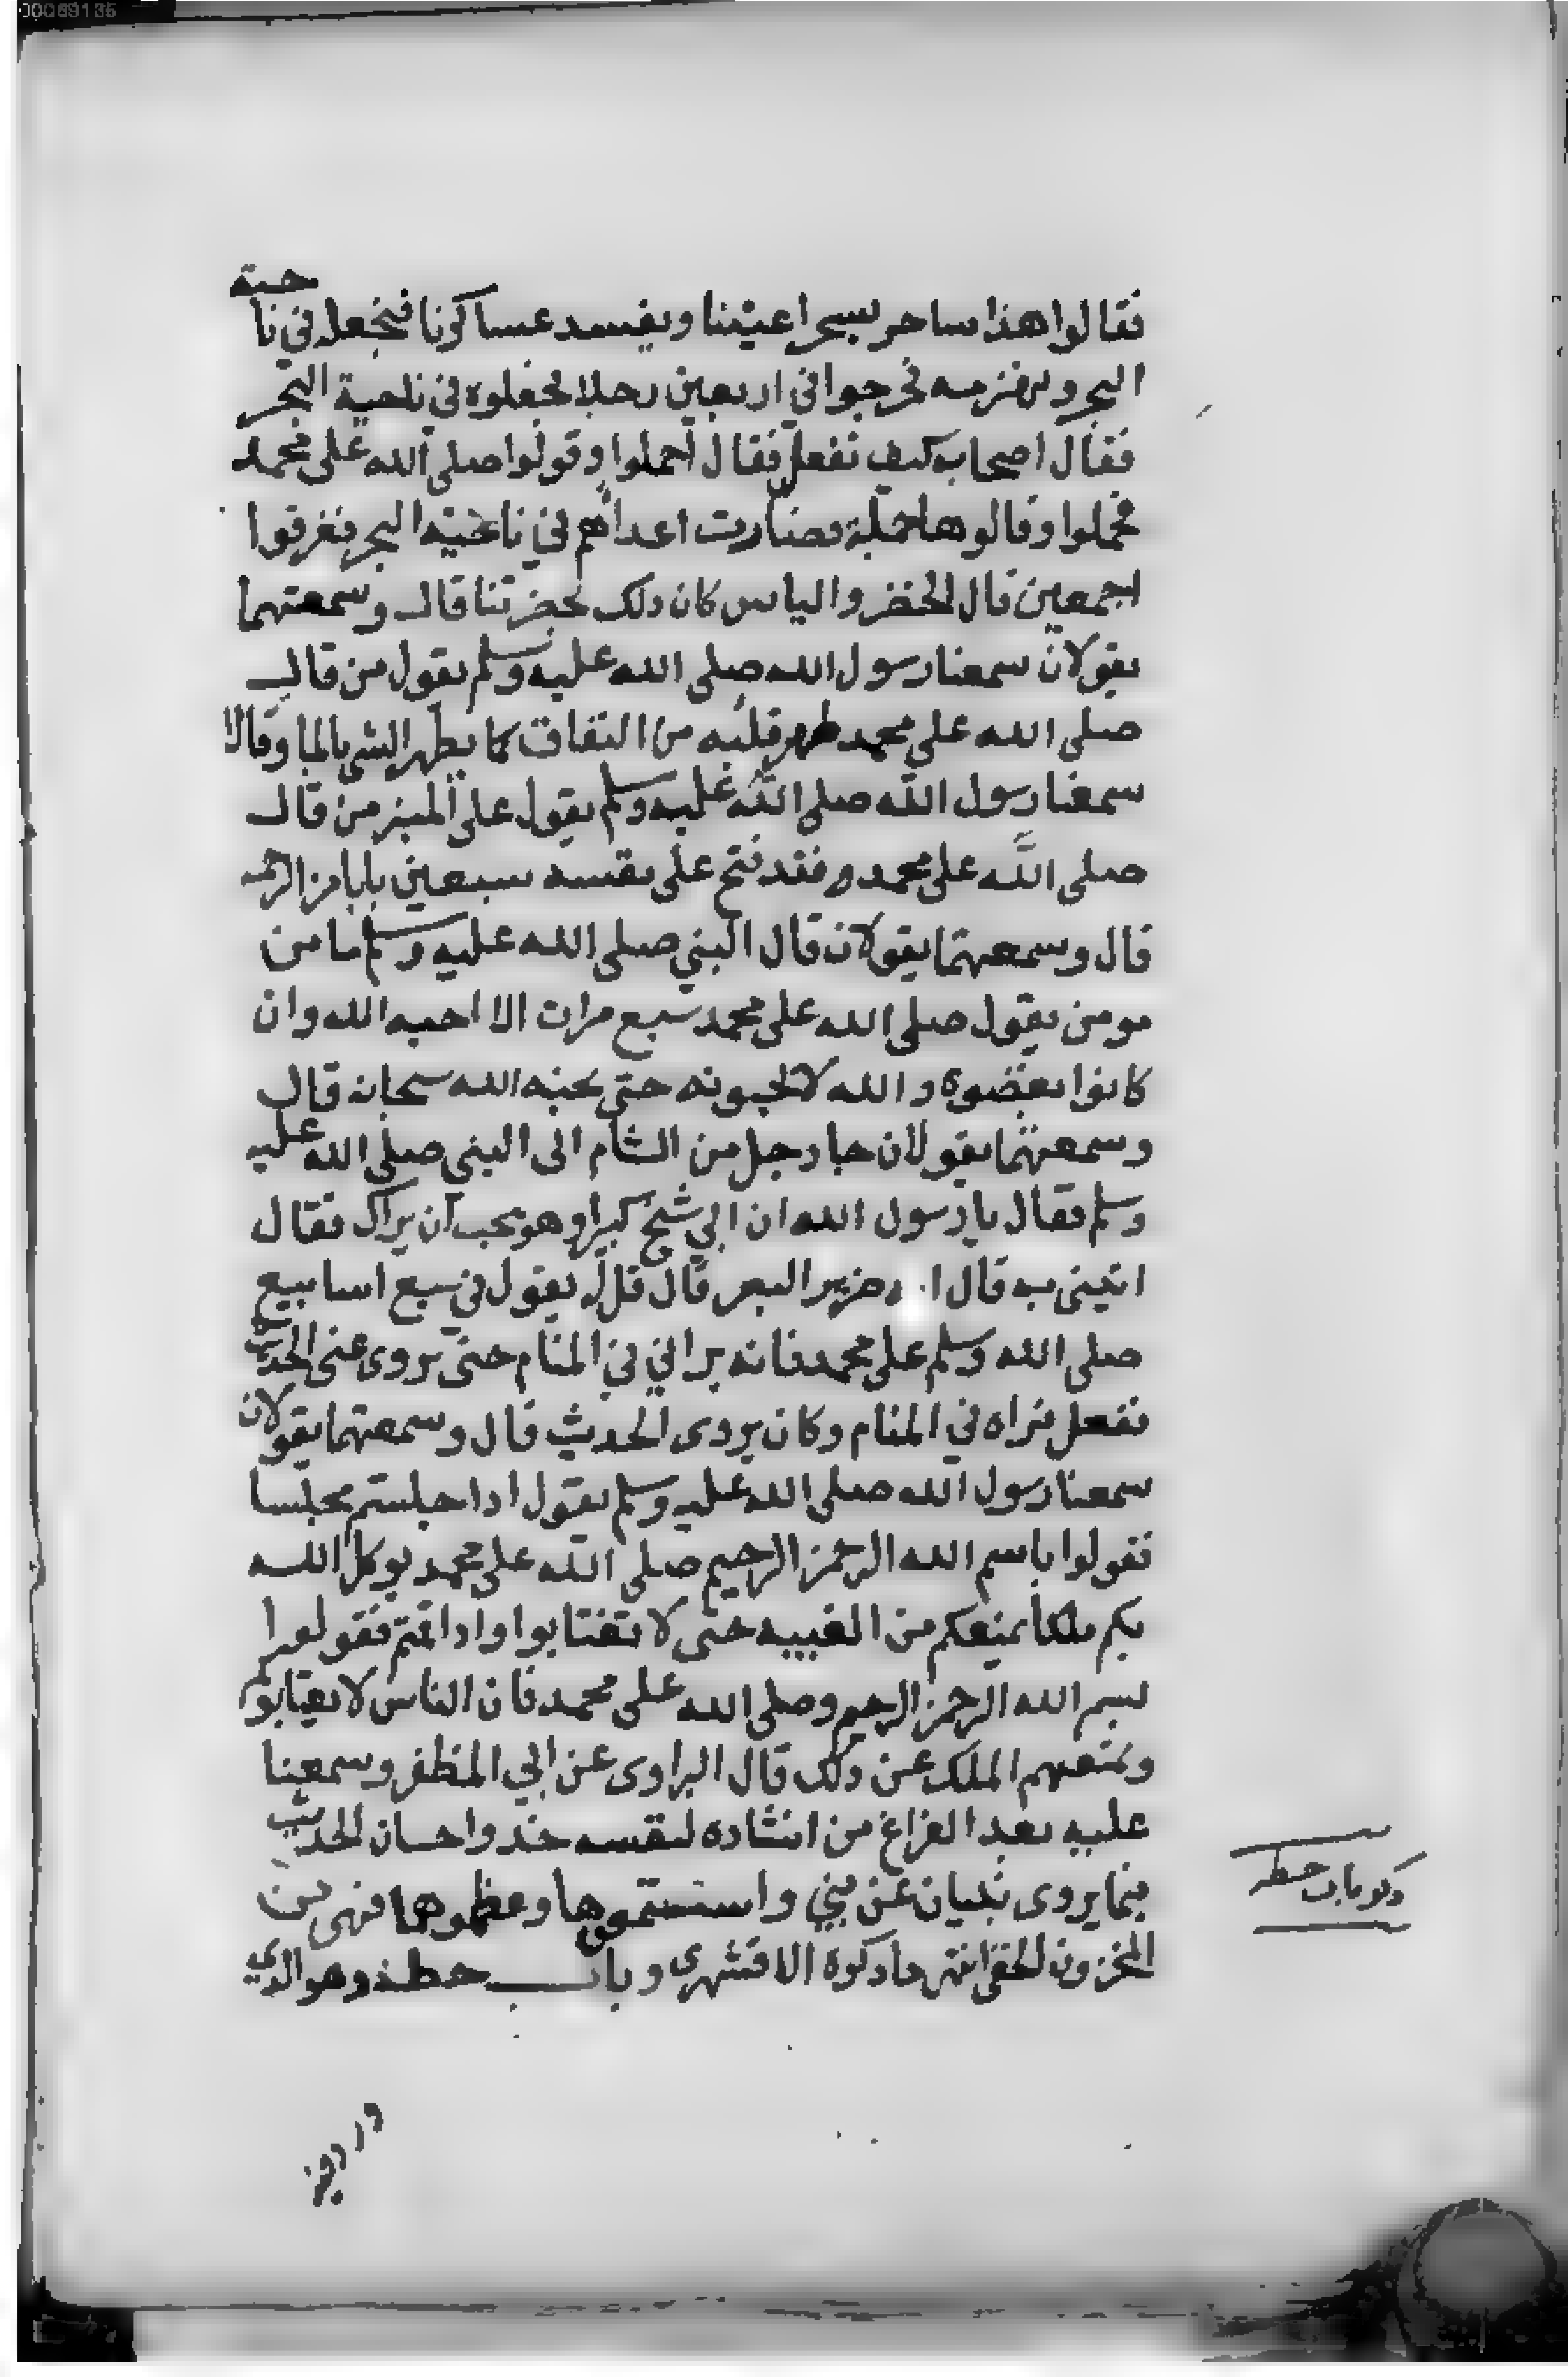 00069135
فقالوا هذا ساحر يسحر اعيننا ويفسد عساكرنا فنجعله في ناحية
البحر ونهزمه فخرجوا في اربعين رجلا فجعلوه في ناحية البحر
فقال اصحابه كيف نفعل فقال احملوا وقولوا صلى الله على محمد
فحملوا وقالوها حملة فصارت اعداهم في ناحية البحر فغرقوا
اجمعين قال الخضر والياس كان ذلك بحضرتنا قال وسمعتهما
يقولان سمعنا رسول الله صلى الله عليه وسلم يقول من قال
صلى الله على محمد طهر قلبه من النفاق كما يطهر الشي بالما وقالا
سمعنا رسول الله صلى الله عليه وسلم يقول على المنبر من قال
صلى الله على محمد فقد فتح على نفسه سبعين بابا من الرحمه
قال وسمعتهما يقولان قال النبي صلى الله عليه وسلم ما من
مومن يقول صلى الله على محمد سبع مرات الا احبه الله وان
كانوا بغضوه والله لا يحبونه حتى يحبه الله سبحانه قال
وسمعتهما يقولان جا رجل من الشام الى النبي صلى الله عليه
وسلم فقال يا رسول الله ان ابي شيخ كبيرا وهو يحب ان يراك فقال
اتيني به قال ضرير البصر قال قل له يقول في سبع اسابيع
صلى الله وسلم على محمد فانه يراني في المنام حتى يروى عني الحديث
ففعل فراه في المنام وكان يروى الحديث قال وسمعتهما يقولان
سمعنا رسول الله صلى الله عليه وسلم يقول اذا جلستم مجلسا
فقولوا باسم الله الرحمن الرحيم صلى الله على محمد يوكل الله
بكم ملكا يمنعكم من الغيبه حتى لا تغتابوا واذا قمتم فقولوا
بسم الله الرحمن الرحيم وصلى الله على محمد فان الناس لا يغتابوكم
ويمنعهم الملك عن ذلك قال الراوى عن ابي المظفر وسمعنا
عليه بعد الفراغ من انشاده لنفسه خذوا الحديث
فيما يروى نبيان عن نبي وعظموها فهي من
المخزون الخفي انتهى ما ذكره الاقشهري وباب حطة وهو الذي
ذكر باب حطه